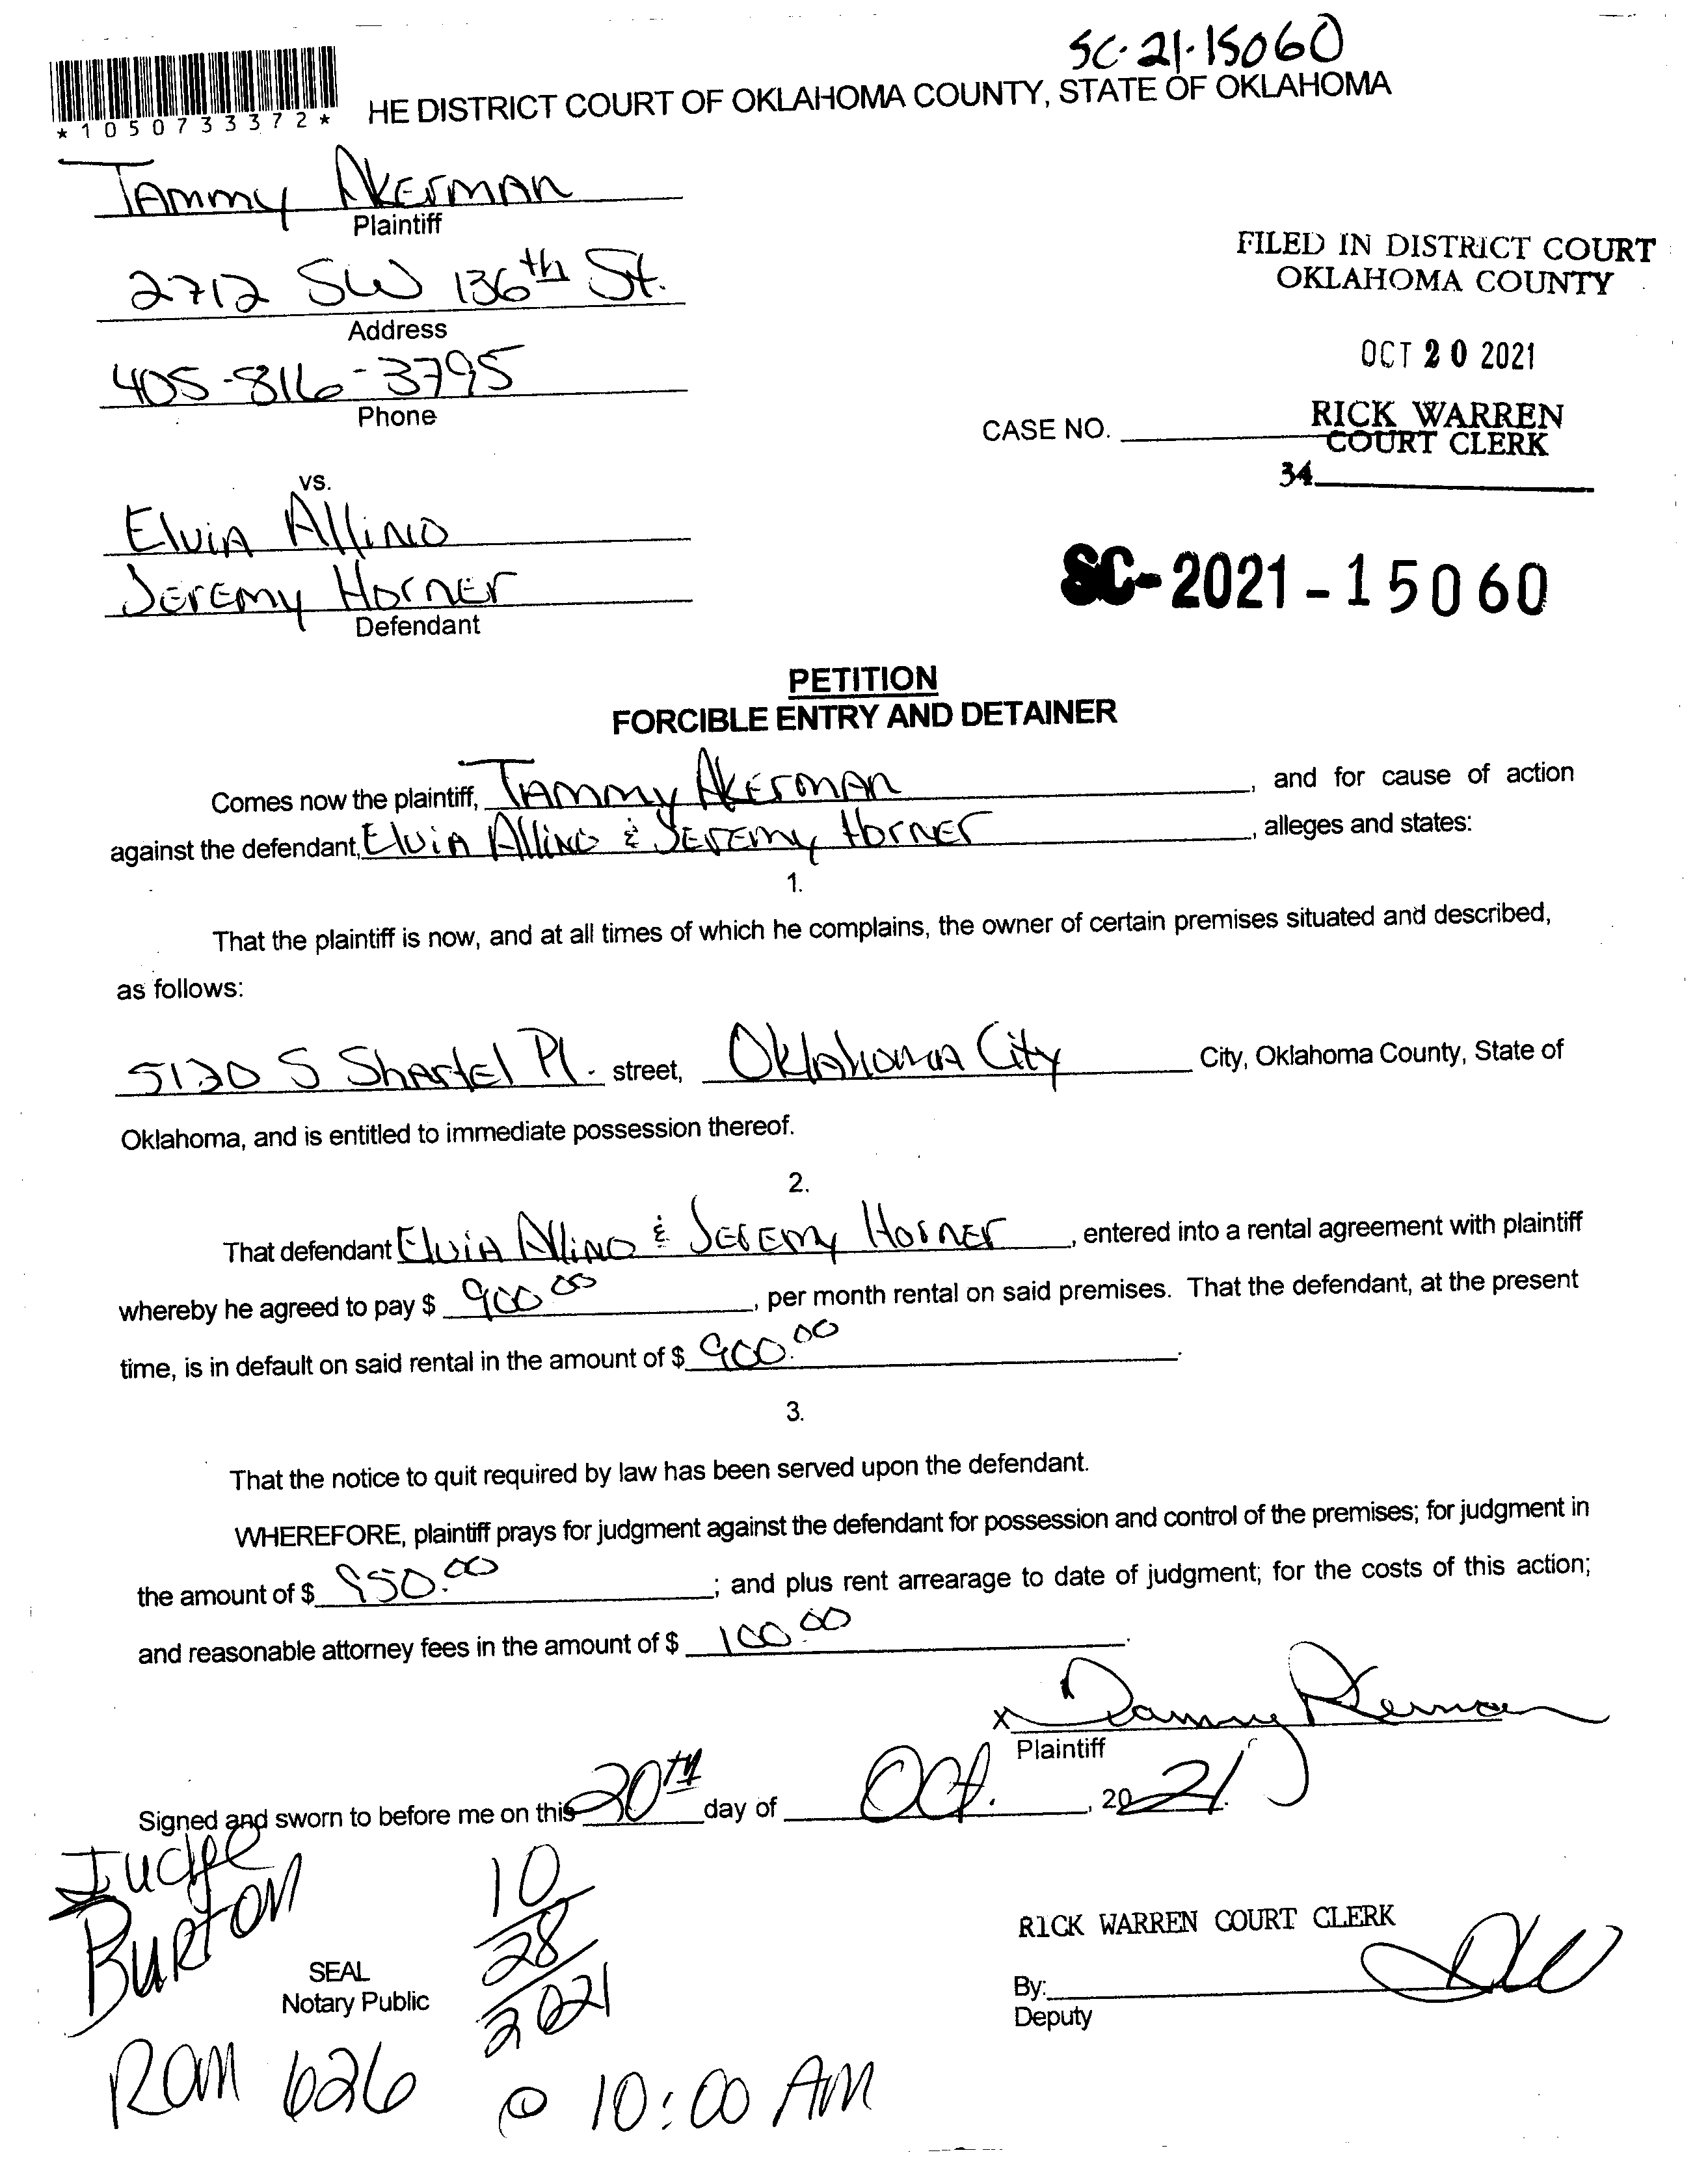 SC-21-15060
*1050733372*
HE DISTRICT COURT OF OKLAHOMA COUNTY, STATE OF OKLAHOMA
TAmmy AKErmAn
Plaintiff
2712 SW 136th St.
Address
405-816-3795
Phone
FILED IN DISTRICT COURT
OKLAHOMA COUNTY
OCT 20 2021
RICK WARREN
COURT CLERK
CASE NO.
34
vs.
ElviA AlliNO
JErEmy HorNEr
Defendant
SC-2021-15060
PETITION
FORCIBLE ENTRY AND DETAINER
Comes now the plaintiff, TAmmy AKErmAn, and for cause of action
against the defendant, ElviA AlliNO & JErEmy HorNEr, alleges and states:
1.
That the plaintiff is now, and at all times of which he complains, the owner of certain premises situated and described,
as follows:
5120 S ShArtEl Pl. street, OklAhomA City City, Oklahoma County, State of
Oklahoma, and is entitled to immediate possession thereof.
2.
That defendant ElviA AlliNO & JErEmy HorNEr, entered into a rental agreement with plaintiff
whereby he agreed to pay $ 900.00, per month rental on said premises. That the defendant, at the present
time, is in default on said rental in the amount of $ 900.00.
3.
That the notice to quit required by law has been served upon the defendant.
WHEREFORE, plaintiff prays for judgment against the defendant for possession and control of the premises; for judgment in
the amount of $ 950.00; and plus rent arrearage to date of judgment; for the costs of this action;
and reasonable attorney fees in the amount of $ 100.00.
x Tammy Akerman
Plaintiff
Signed and sworn to before me on this 20TH day of Oct., 2021.
Judge
Burton
10/28/2021
SEAL
Notary Public
RICK WARREN COURT CLERK
By:
Deputy
Rom 626 @ 10:00 AM